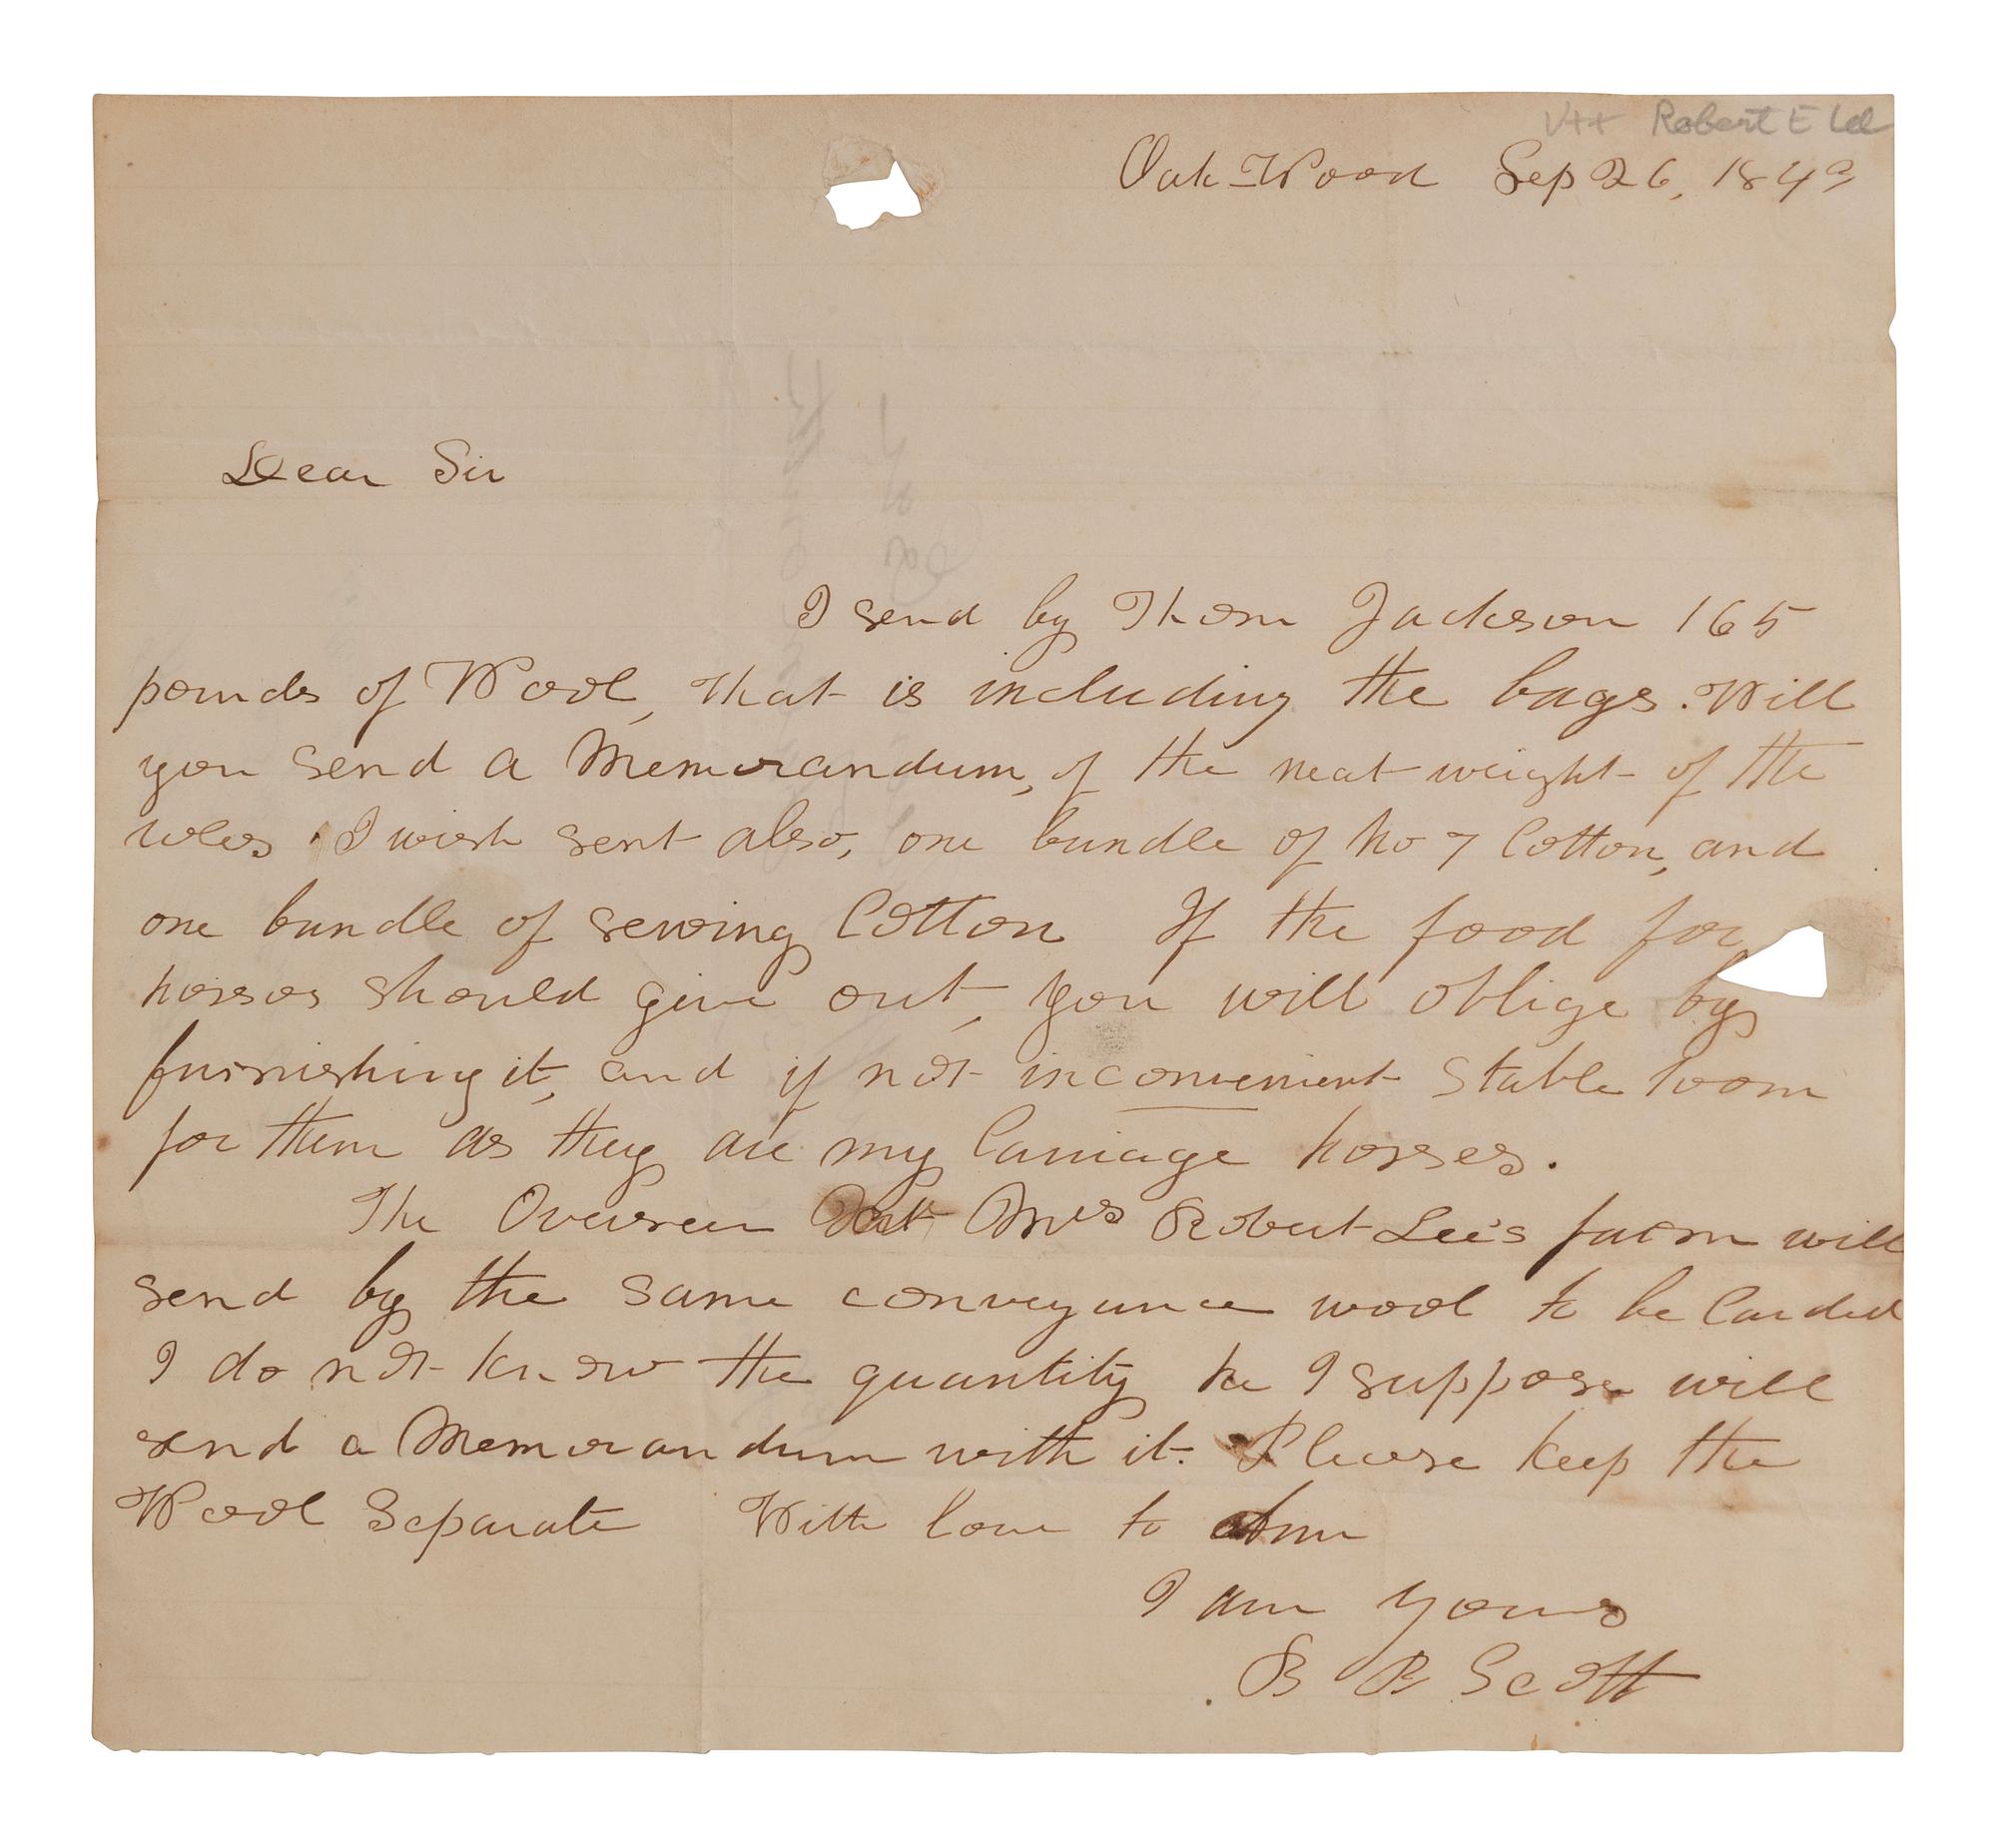 Robert E Lee
Oak-Wood Sep 26, 1849
Dear Sir
I send by Thom Jackson 165
pounds of Wool, that is including the bags. Will
you send a Memorandum, of the neat weight of the
roles. I wish sent also, one bundle of No 7 Cotton, and
one bundle of sewing Cotton If the food for
horses should give out, you will oblige by
furnishing it, and if not inconvenient stable room
for them as they are my Carriage horses.
The Overseer at Mrs Robert Lee's farm will
send by the same conveyance wool to be Carded
I do not know the quantity he I suppose will
send a Memorandum with it. Please keep the
Wool Separate With love to Ann
I am yours
R Scott